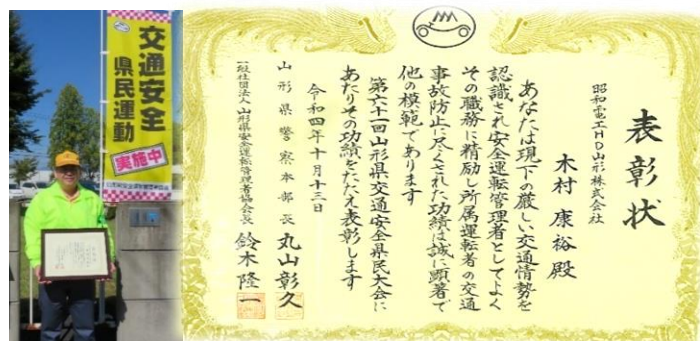 交通安全
県民運動
実施中
表彰状
昭和電工HD山形株式会社
木村康裕殿
あなたは現下の厳しい交通情勢を
認識され安全運転管理者としてよく
その職務に精励し所属運転者の交通
事故防止に尽くされた功績は誠に顕著で
他の模範であります
第六十一回山形県交通安全県民大会に
あたりその功績をたたえ表彰します
令和四年十月十三日
山形県警察本部長 丸山彰久
一般社団法人山形県安全運転管理者協会長 鈴木隆一